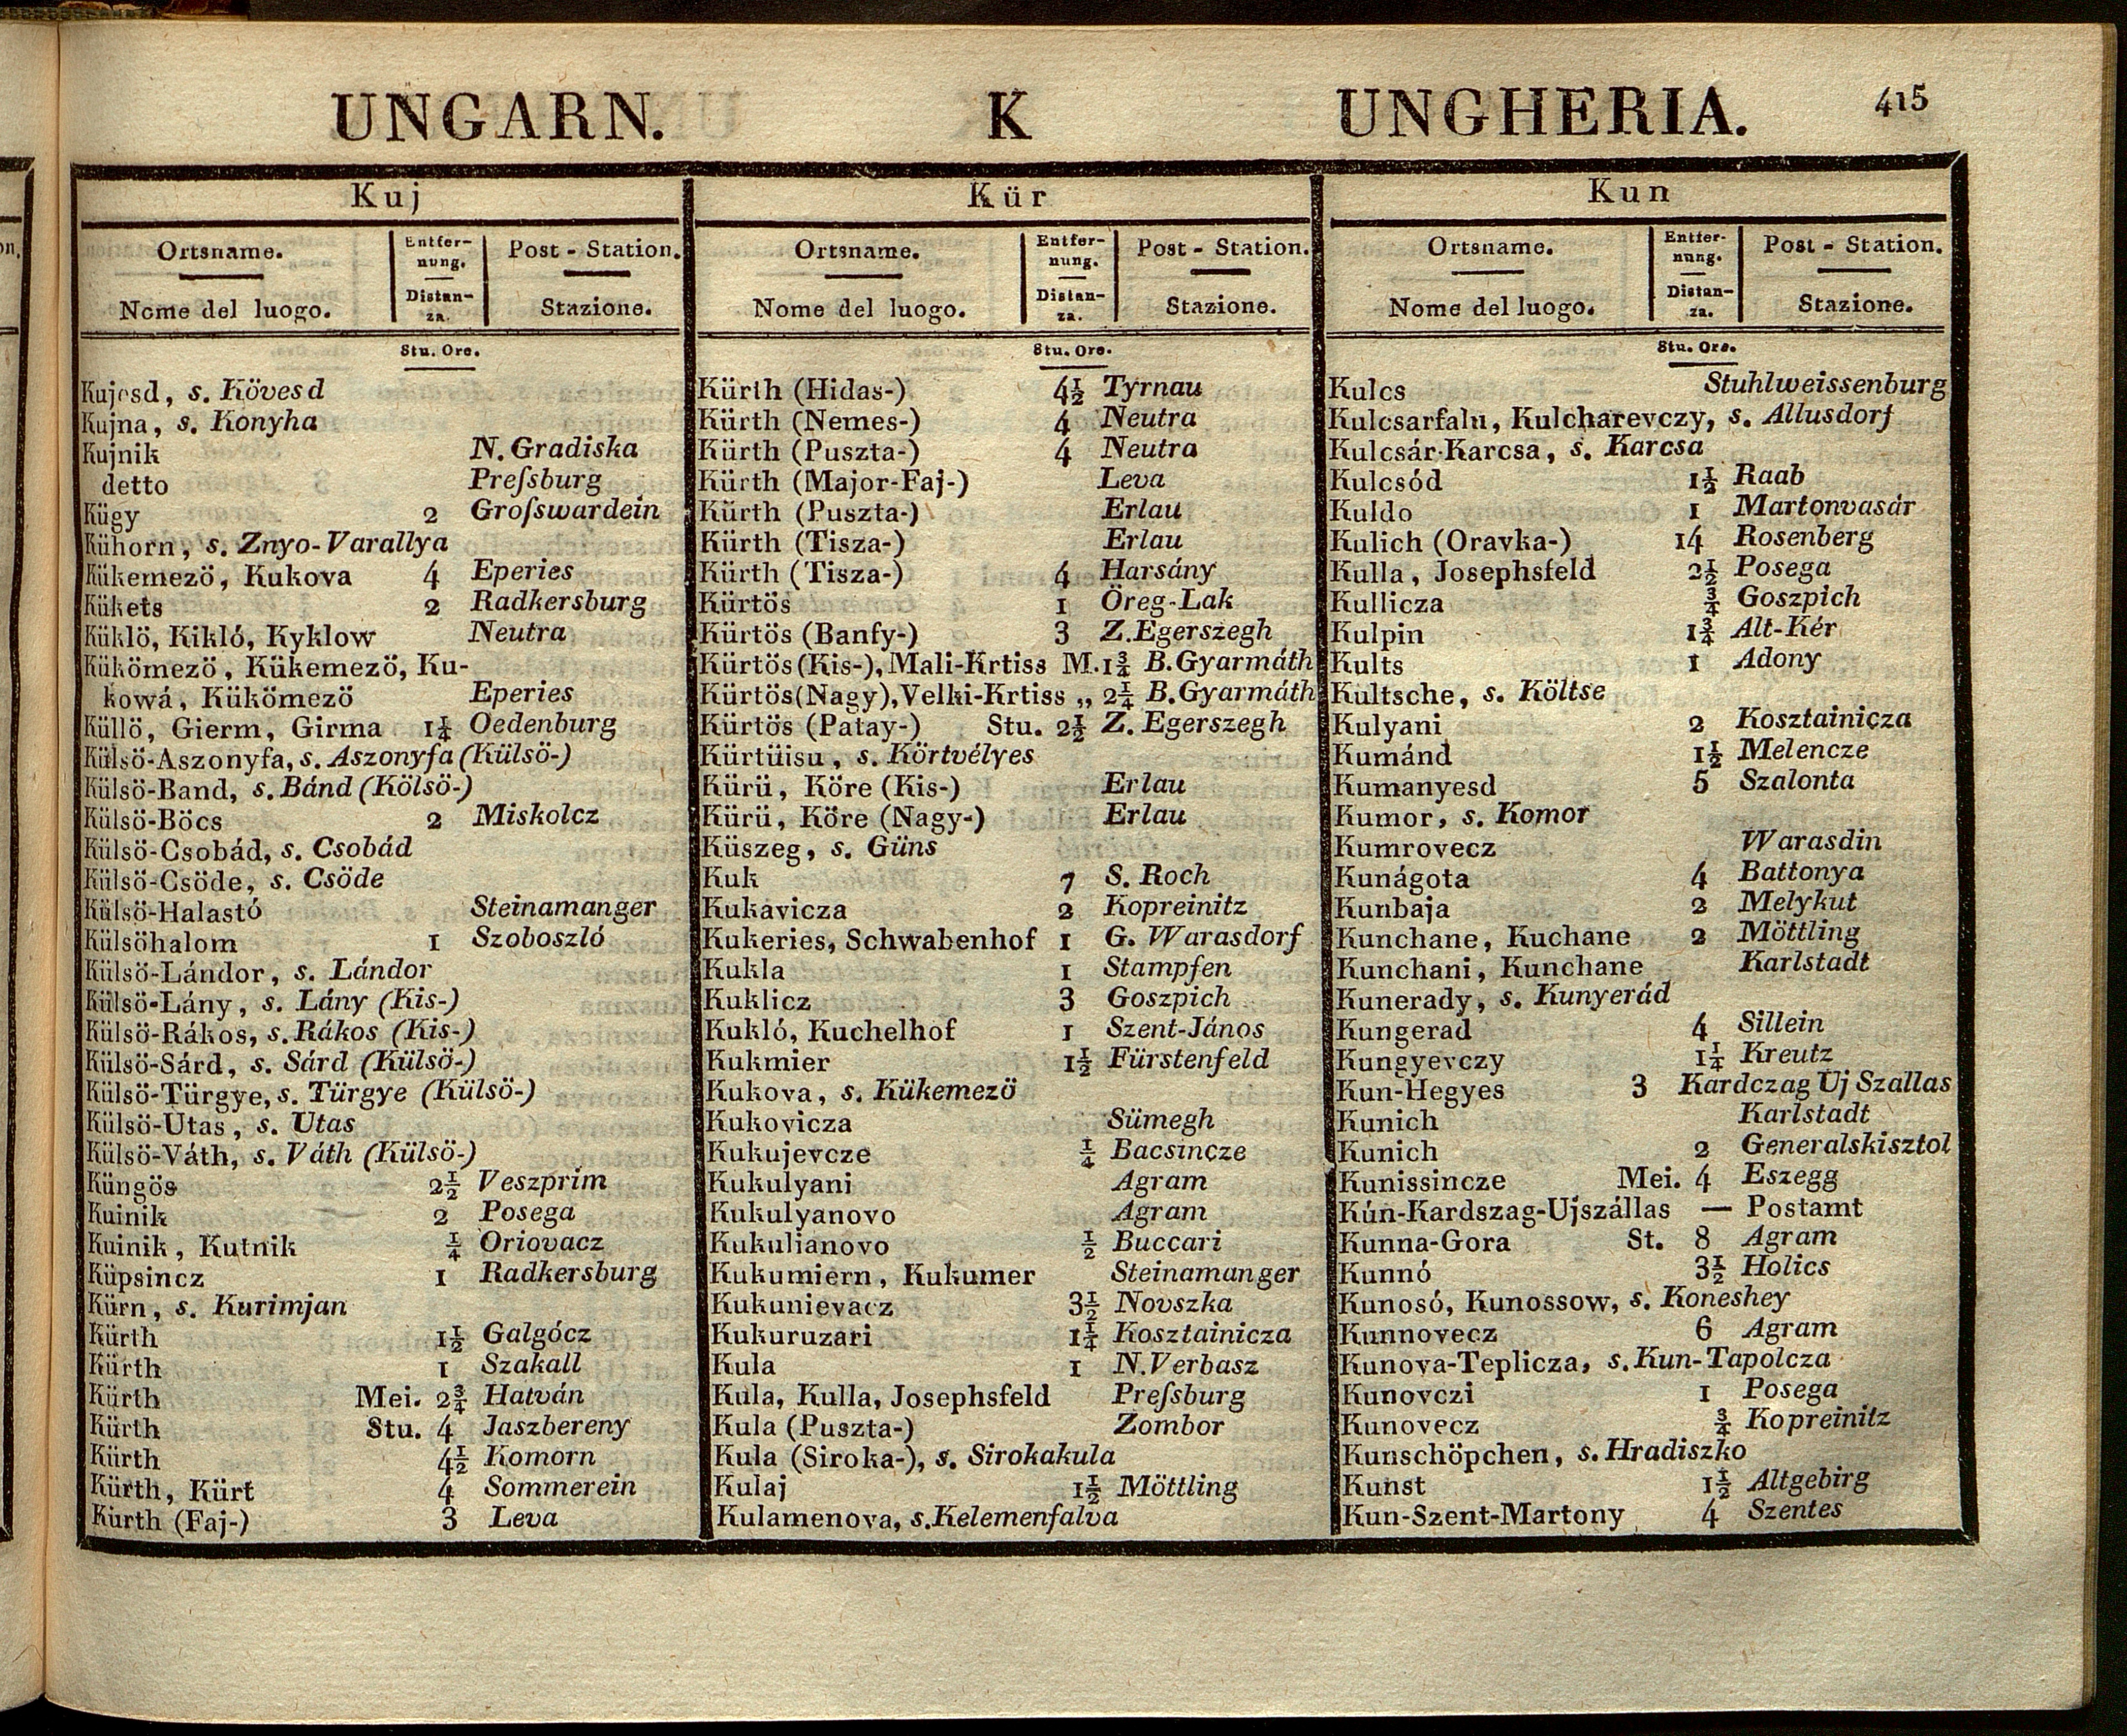 UNGARN. K UNGHERIA. 415
Kuj
Ortsname. Entfer- Post - Station.
nung.
Nome del luogo. Distan- Stazione.
za.
Stu. Ore.
Kujesd, s. Kövesd
Kujna, s. Konyha
Kujnik N. Gradiska
detto Preſsburg
Kügy 2 Groſswardein
Kühorn, s. Znyo-Varallya
Kükemezö, Kukova 4 Eperies
Kükets 2 Radkersburg
Küklö, Kikló, Kyklow Neutra
Kükömezö, Kükemezö, Ku-
kowá, Kükömezö Eperies
Küllö, Gierm, Girma 1¼ Oedenburg
Külsö-Aszonyfa, s. Aszonyfa (Külsö-)
Külsö-Band, s. Bánd (Kölsö-)
Külsö-Böcs 2 Miskolcz
Külsö-Csobád, s. Csobád
Külsö-Csöde, s. Csöde
Külsö-Halastó Steinamanger
Külsöhalom 1 Szoboszló
Külsö-Lándor, s. Lándor
Külsö-Lány, s. Lány (Kis-)
Külsö-Rákos, s. Rákos (Kis-)
Külsö-Sárd, s. Sárd (Külsö-)
Külsö-Türgye, s. Türgye (Külsö-)
Külsö-Utas, s. Utas
Külsö-Váth, s. Váth (Külsö-)
Küngös 2½ Veszprim
Kuinik 2 Posega
Kuinik, Kutnik ¼ Oriovacz
Küpsincz 1 Radkersburg
Kürn, s. Kurimjan
Kürth 1½ Galgócz
Kürth 1 Szakall
Kürth Mei. 2¾ Hatván
Kürth Stu. 4 Jaszbereny
Kürth 4½ Komorn
Kürth, Kürt 4 Sommerein
Kürth (Faj-) 3 Leva
Kür
Ortsname. Entfer- Post - Station.
nung.
Nome del luogo. Distan- Stazione.
za.
Stu. Ore.
Kürth (Hidas-) 4½ Tyrnau
Kürth (Nemes-) 4 Neutra
Kürth (Puszta-) 4 Neutra
Kürth (Major-Faj-) Leva
Kürth (Puszta-) Erlau
Kürth (Tisza-) Erlau
Kürth (Tisza-) 4 Harsány
Kürtös 1 Öreg-Lak
Kürtös (Banfy-) 3 Z. Egerszegh
Kürtös (Kis-), Mali-Krtiss M. 1¾ B. Gyarmáth
Kürtös (Nagy), Velki-Krtiss „ 2¼ B. Gyarmáth
Kürtös (Patay-) Stu. 2½ Z. Egerszegh
Kürtüisu, s. Körtvélyes
Kürü, Köre (Kis-) Erlau
Kürü, Köre (Nagy-) Erlau
Küszeg, s. Güns
Kuk 7 S. Roch
Kukavicza 2 Kopreinitz
Kukeries, Schwabenhof 1 G. Warasdorf
Kukla 1 Stampfen
Kuklicz 3 Goszpich
Kukló, Kuchelhof 1 Szent-János
Kukmier 1½ Fürstenfeld
Kukova, s. Kükemezö
Kukovicza Sümegh
Kukujevcze ¼ Bacsincze
Kukulyani Agram
Kukulyanovo Agram
Kukulianovo ½ Buccari
Kukumiern, Kukumer Steinamanger
Kukunievacz 3½ Novszka
Kukuruzari 1¼ Kosztainicza
Kula 1 N. Verbasz
Kula, Kulla, Josephsfeld Preſsburg
Kula (Puszta-) Zombor
Kula (Siroka-), s. Sirokakula
Kulaj 1½ Möttling
Kulamenova, s. Kelemenfalva
Kun
Ortsname. Entfer- Post - Station.
nung.
Nome del luogo. Distan- Stazione.
za.
Stu. Ore.
Kulcs Stuhlweissenburg
Kulcsarfalu, Kulcharevczy, s. Allusdorf
Kulcsár-Karcsa, s. Karcsa
Kulcsód 1½ Raab
Kuldo 1 Martonvasár
Kulich (Oravka-) 14 Rosenberg
Kulla, Josephsfeld 2½ Posega
Kullicza ¾ Goszpich
Kulpin 1¾ Alt-Kér
Kults 1 Adony
Kultsche, s. Költse
Kulyani 2 Kosztainicza
Kumánd 1½ Melencze
Kumanyesd 5 Szalonta
Kumor, s. Komor
Kumrovecz Warasdin
Kunágota 4 Battonya
Kunbaja 2 Melykut
Kunchane, Kuchane 2 Möttling
Kunchani, Kunchane Karlstadt
Kunerady, s. Kunyerád
Kungerad 4 Sillein
Kungyevczy 1¼ Kreutz
Kun-Hegyes 3 Kardczag Uj Szallas
Kunich Karlstadt
Kunich 2 Generalskisztol
Kunissincze Mei. 4 Eszegg
Kún-Kardszag-Ujszállas — Postamt
Kunna-Gora St. 8 Agram
Kunnó 3½ Holics
Kunosó, Kunossow, s. Koneshey
Kunnovecz 6 Agram
Kunova-Teplicza, s. Kun-Tapolcza
Kunovczi 1 Posega
Kunovecz ¾ Kopreinitz
Kunschöpchen, s. Hradiszko
Kunst 1½ Altgebirg
Kun-Szent-Martony 4 Szentes